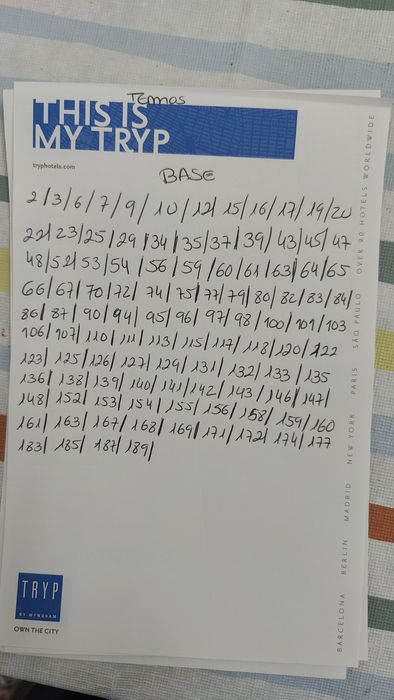 Temas
THIS IS
MY TRYP
tryphotels.com
BASE
2/3/6/7/9/10/12/15/16/17/19/20
22/23/25/29/34/35/37/39/43/45/47
48/52/53/54/56/59/60/61/63/64/65
66/67/70/72/74/75/77/79/80/82/83/84/
86/87/90/94/95/96/97/98/100/101/103
106/107/110/111/113/115/117/118/120/122
123/125/126/127/129/131/132/133/135
136/138/139/140/141/142/143/146/147/
148/152/153/154/155/156/158/159/160
161/163/167/168/169/171/172/174/177
183/185/187/189/
BARCELONA BERLIN MADRID NEW YORK PARIS SÃO PAULO OVER 90 HOTELS WORLDWIDE
TRYP
BY WYNDHAM
OWN THE CITY